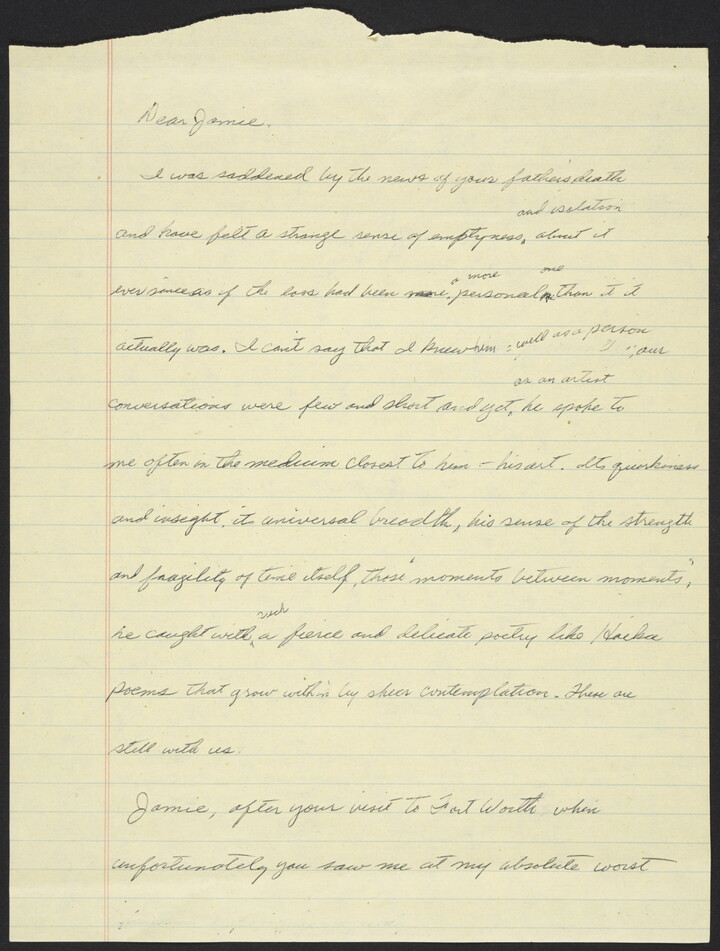 Dear Jamie.
I was saddened by the news of your father's death
and isolation
and have felt a strange sense of emptyness, about it
ever since as if the loss had been more a more personal one than it it
actually was. I can't say that I knew him well as a person ; our
as an artist
conversations were few and short and yet, he spoke to
me often in the medium closest to him – his art. Its quirkiness
and insight, it universal breadth, his sense of the strength
and fragility of time itself, those "moments between moments",
such
he caught with, a fierce and delicate poetry like Haiku
poems that grow within by sheer contemplation. These are
still with us.
Jamie, after your visit to Fort Worth when
unfortunately you saw me at my absolute worst